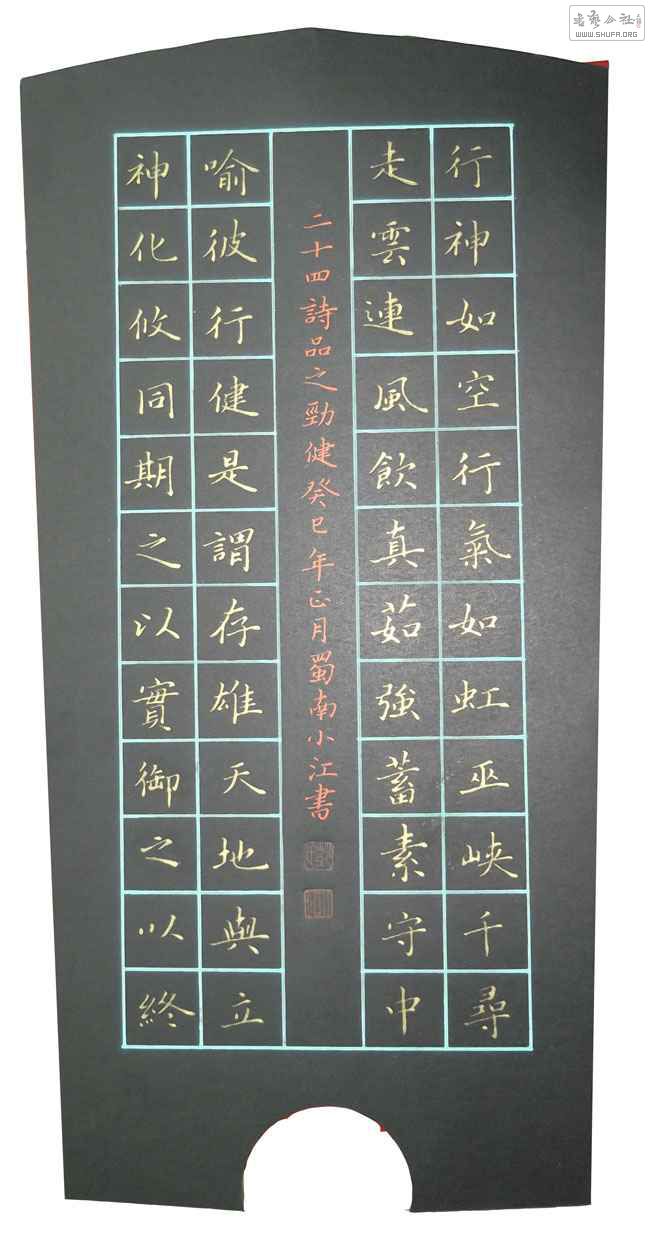 行神如空行氣如虹巫峽千尋
走雲連風飲真茹強蓄素守中
二十四詩品之勁健癸巳年正月蜀南小江書
喻彼行健是謂存雄天地與立
神化攸同期之以實御之以終
書藝公社
WWW.SHUFA.ORG